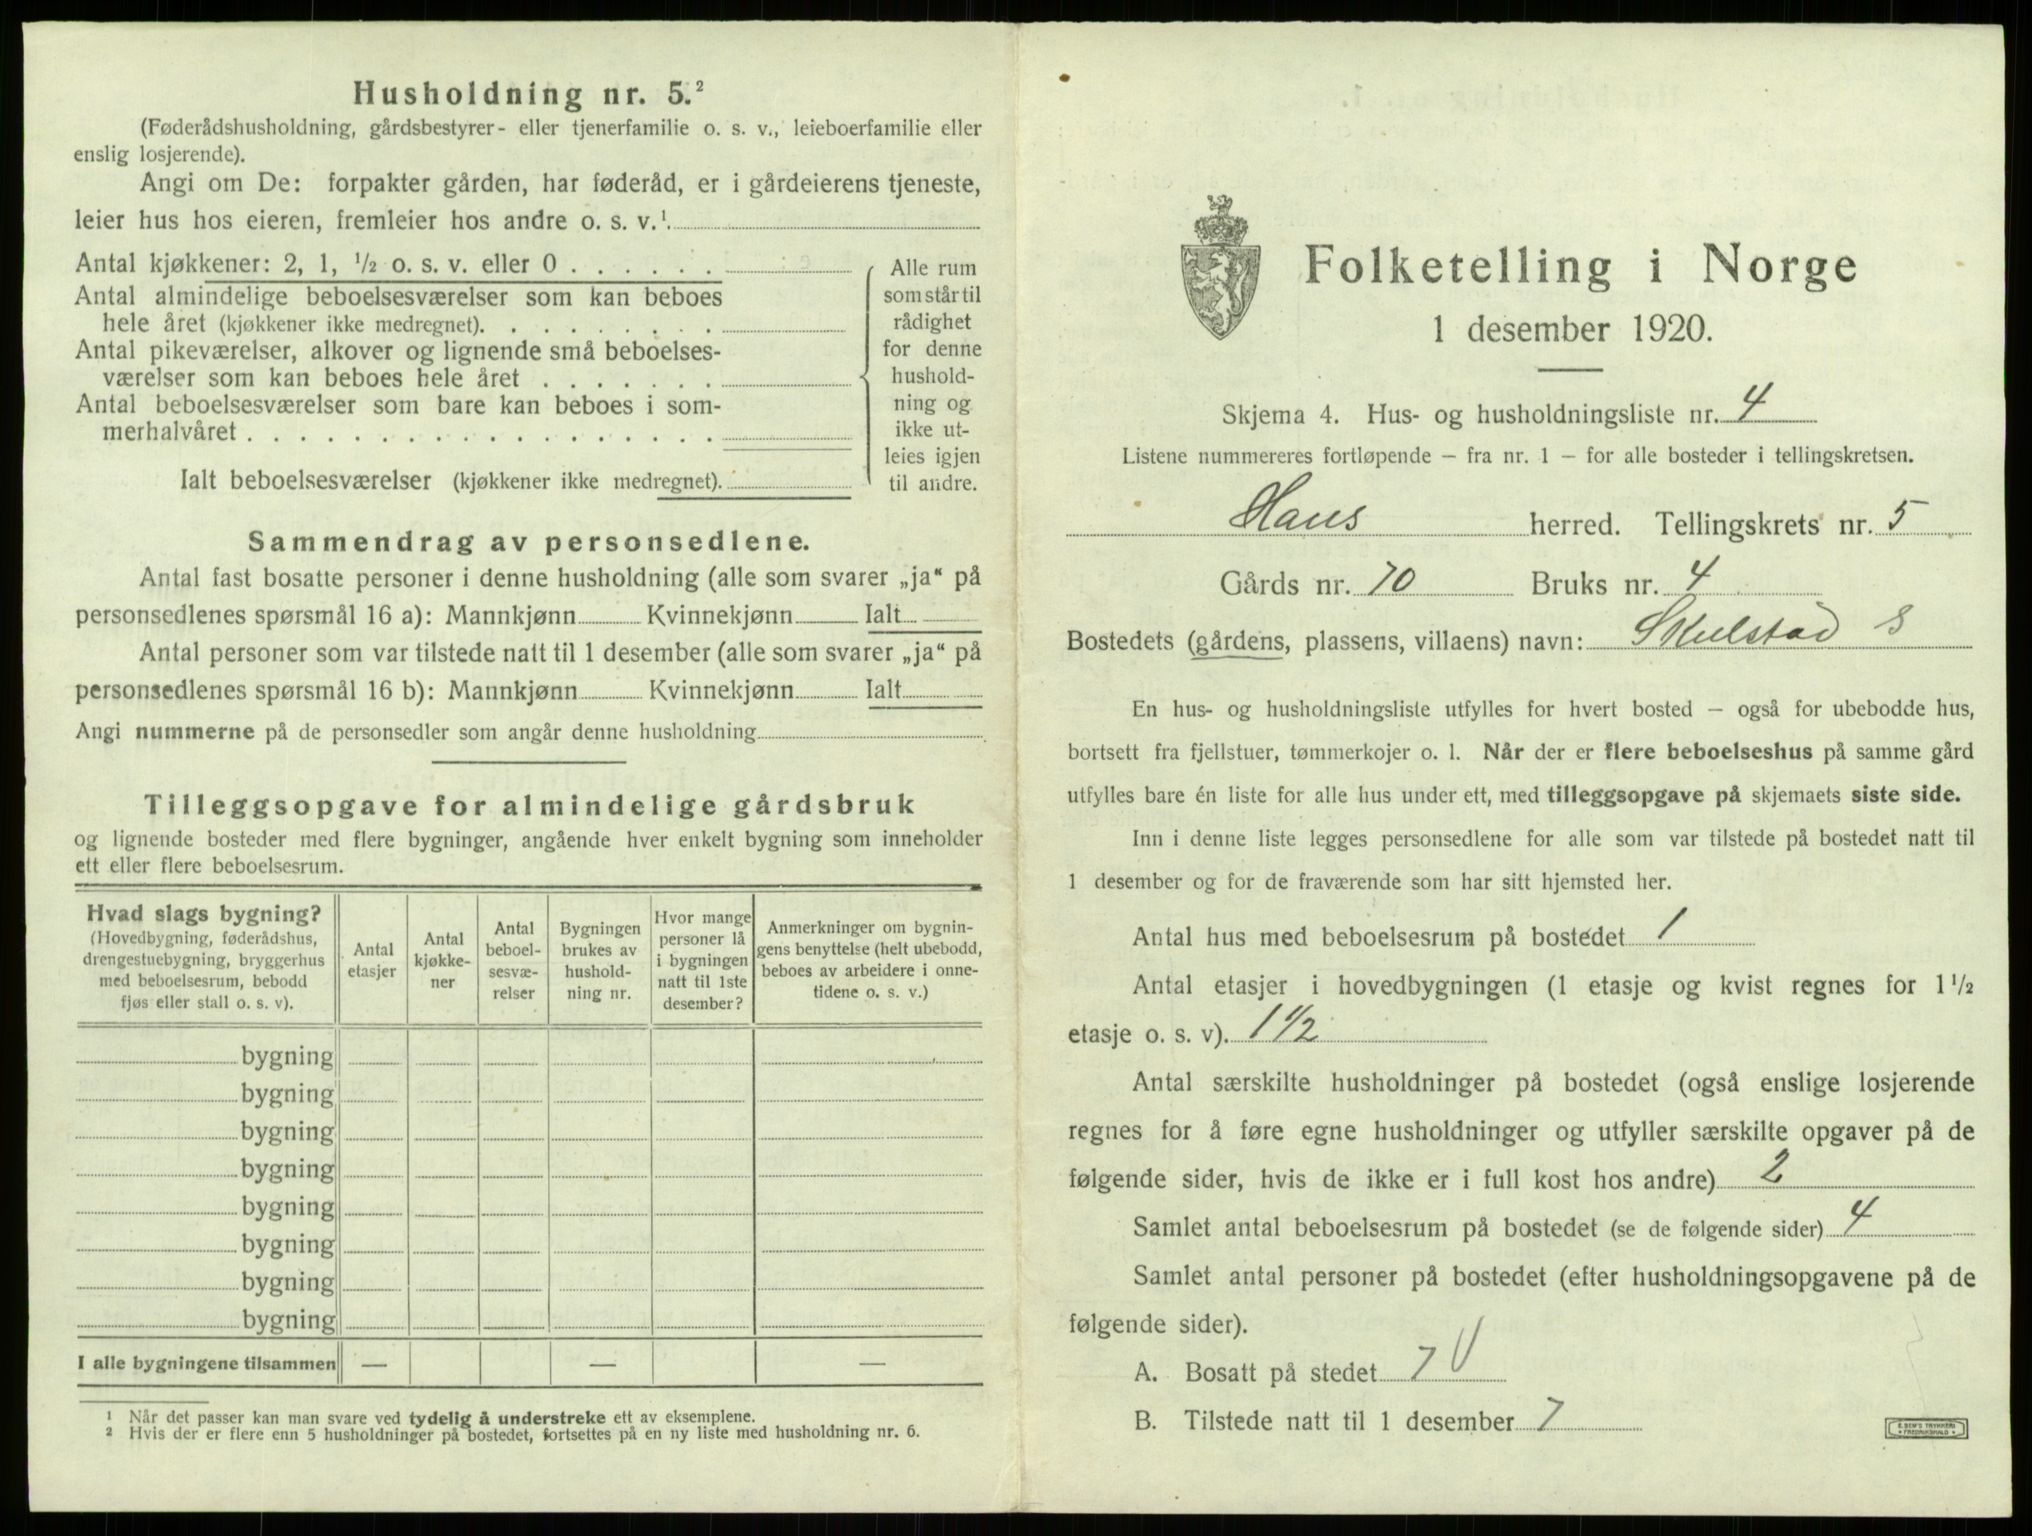 Husholdning nr. 5.²
(Føderådshusholdning, gårdsbestyrer- eller tjenerfamilie o. s. v., leieboerfamilie eller
enslig losjerende).
Angi om De: forpakter gården, har føderåd, er i gårdeierens tjeneste,
leier hus hos eieren, fremleier hos andre o. s. v.¹
Antal kjøkkener: 2, 1, ½ o. s. v. eller 0 . . . . . .
Antal almindelige beboelsesværelser som kan beboes
hele året (kjøkkener ikke medregnet). . . . . . . . .
Antal pikeværelser, alkover og lignende små beboelses-
værelser som kan beboes hele året . . . . . . .
Antal beboelsesværelser som bare kan beboes i som-
merhalvåret . . . . . . . . . . . . . . . . . .
Ialt beboelsesværelser (kjøkkener ikke medregnet).
Alle rum
som står til
rådighet
for denne
hushold-
ning og
ikke ut-
leies igjen
til andre.
Sammendrag av personsedlene.
Antal fast bosatte personer i denne husholdning (alle som svarer „ja“ på
personsedlenes spørsmål 16 a): Mannkjønn Kvinnekjønn Ialt
Antal personer som var tilstede natt til 1 desember (alle som svarer „ja“ på
personsedlenes spørsmål 16 b): Mannkjønn Kvinnekjønn Ialt
Angi nummerne på de personsedler som angår denne husholdning
Tilleggsopgave for almindelige gårdsbruk
og lignende bosteder med flere bygninger, angående hver enkelt bygning som inneholder
ett eller flere beboelsesrum.
Hvad slags bygning?
(Hovedbygning, føderådshus,
drengestuebygning, bryggerhus
med beboelsesrum, bebodd
fjøs eller stall o. s. v).
Antal
etasjer
Antal
kjøkke-
ner
Antal
beboel-
sesvæ-
relser
Bygningen
brukes av
hushold-
ning nr.
Hvor mange
personer lå
i bygningen
natt til 1ste
desember?
Anmerkninger om bygnin-
gens benyttelse (helt ubebodd,
beboes av arbeidere i onne-
tidene o. s. v.)
bygning
bygning
bygning
bygning
bygning
bygning
bygning
bygning
I alle bygningene tilsammen — — —
¹ Når det passer kan man svare ved tydelig å understreke ett av eksemplene.
² Hvis der er flere enn 5 husholdninger på bostedet, fortsettes på en ny liste med husholdning nr. 6.
Folketelling i Norge
1 desember 1920.
Skjema 4. Hus- og husholdningsliste nr. 4
Listene nummereres fortløpende – fra nr. 1 – for alle bosteder i tellingskretsen.
Haus herred. Tellingskrets nr. 5
Gårds nr. 70 Bruks nr. 4
Bostedets (gårdens, plassens, villaens) navn: Skulstad S
En hus- og husholdningsliste utfylles for hvert bosted – også for ubebodde hus,
bortsett fra fjellstuer, tømmerkojer o. l. Når der er flere beboelseshus på samme gård
utfylles bare én liste for alle hus under ett, med tilleggsopgave på skjemaets siste side.
Inn i denne liste legges personsedlene for alle som var tilstede på bostedet natt til
1 desember og for de fraværende som har sitt hjemsted her.
Antal hus med beboelsesrum på bostedet 1
Antal etasjer i hovedbygningen (1 etasje og kvist regnes for 1½
etasje o. s. v). 1 1/2
Antal særskilte husholdninger på bostedet (også enslige losjerende
regnes for å føre egne husholdninger og utfyller særskilte opgaver på de
følgende sider, hvis de ikke er i full kost hos andre) 2
Samlet antal beboelsesrum på bostedet (se de følgende sider) 4
Samlet antal personer på bostedet (efter husholdningsopgavene på de
følgende sider).
A. Bosatt på stedet 7
B. Tilstede natt til 1 desember 7
E. SEM'S TRYKKERI
FREDRIKSHALD